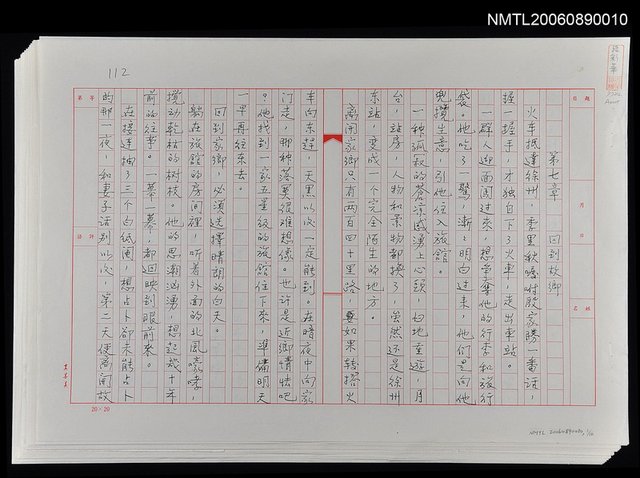 NMTL20060890010
112
第七章　回到故鄉
火車抵達徐州，李里秋囑咐殷家勝一番話，
握一握手，才獨自下了火車，走出車站。
一群人迎面闖過來，想拿奪他的行李和旅行
袋。他吃了一驚，漸漸明白過來，他們是向他
兜攬生意，引他住入旅館。
一種孤寂的蒼涼感湧上心頭。白地重遊，月
台，站房，人物和景物都換了，雖然還是徐州
東站，變成一個完全陌生的地方。
離開家鄉只有兩百四十里路，如果轉搭火
車向東趕，天黑以後一定能到。在暗夜中向家
門走，那種落寞很難想像。也許是近鄉情怯吧
？他找到一家五星級的旅館住下來，準備明天
一早再往東去。
回到家鄉，必須選擇晴朗的白天。
躺在旅館的房間裡，聽著外面的北風嚎哮，
攪動乾枯的樹枝。他的思潮洶湧，想起幾十年
前的往事。一幕一幕，都回映到眼前來。
在接連抽了三個白紙鬮，想占卜卻未能占卜
的那一夜，和妻子話別以後，第二天便離開故
20×20
NMTL 20060890010